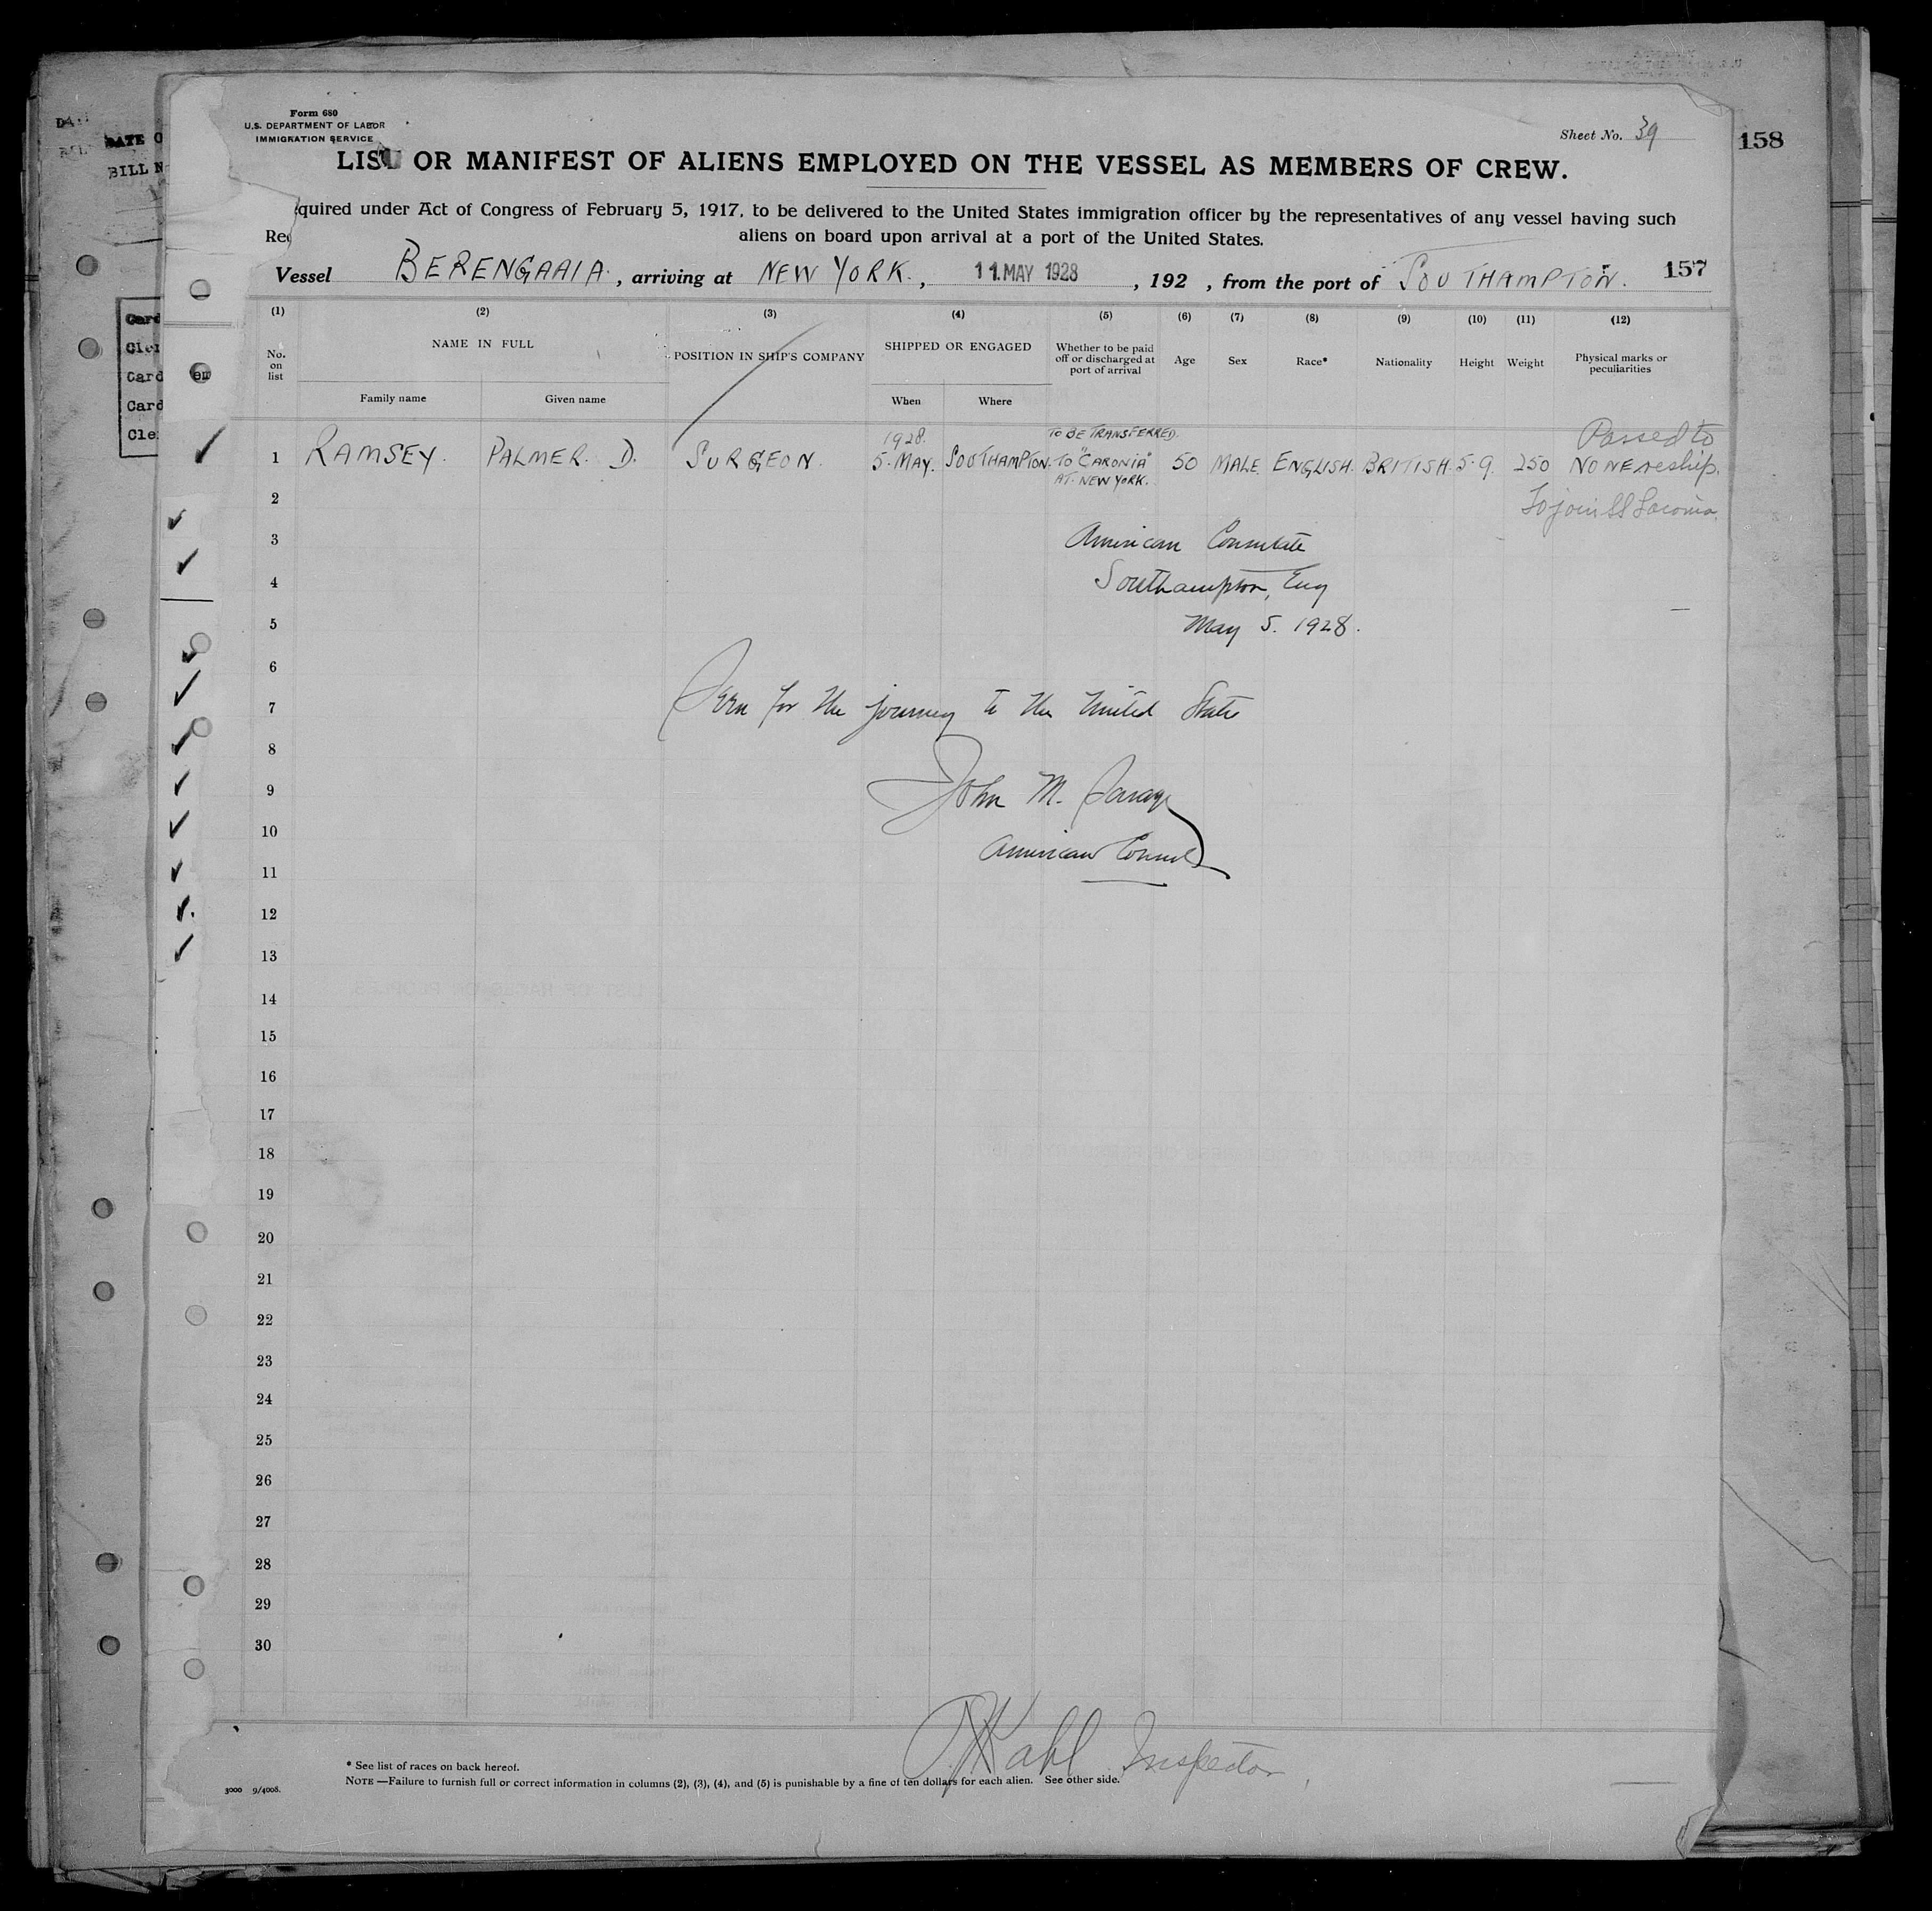 158
DATE O
BILL N
Form 680
U.S. DEPARTMENT OF LABOR
IMMIGRATION SERVICE
Sheet No. 39
LIST OR MANIFEST OF ALIENS EMPLOYED ON THE VESSEL AS MEMBERS OF CREW.
Req
quired under Act of Congress of February 5, 1917, to be delivered to the United States immigration officer by the representatives of any vessel having such
aliens on board upon arrival at a port of the United States.
157
Vessel BERENGARIA, arriving at NEW YORK., 11. MAY 1928, 192 , from the port of SOUTHAMPTON.
(1) (2) (3) (4) (5) (6) (7) (8) (9) (10) (11) (12)
No. on list NAME IN FULL POSITION IN SHIP'S COMPANY SHIPPED OR ENGAGED Whether to be paid off or discharged at port of arrival Age Sex Race* Nationality Height Weight Physical marks or peculiarities
Family name Given name When Where
Card
Cler
Card
Card
Cle
em
1 RAMSEY. PALMER. D. SURGEON. 1928. 5. MAY. SOUTHAMPTON. TO BE TRANSFERRED. TO "CARONIA" AT NEW YORK. 50 MALE. ENGLISH. BRITISH. 5-9. 250 NONE
Passed to
reship.
To join SS
2
3
American Consulate
4
Southampton, Eng
5
May 5. 1928.
6
7
Seen for the journey to the United States
8
9
John M. Savage
10
American Consul
11
12
13
14
15
16
17
18
19
20
21
22
23
24
25
26
27
28
29
30
Kahl Inspector
* See list of races on back hereof.
NOTE—Failure to furnish full or correct information in columns (2), (3), (4), and (5) is punishable by a fine of ten dollars for each alien. See other side.
3000 9/4008.